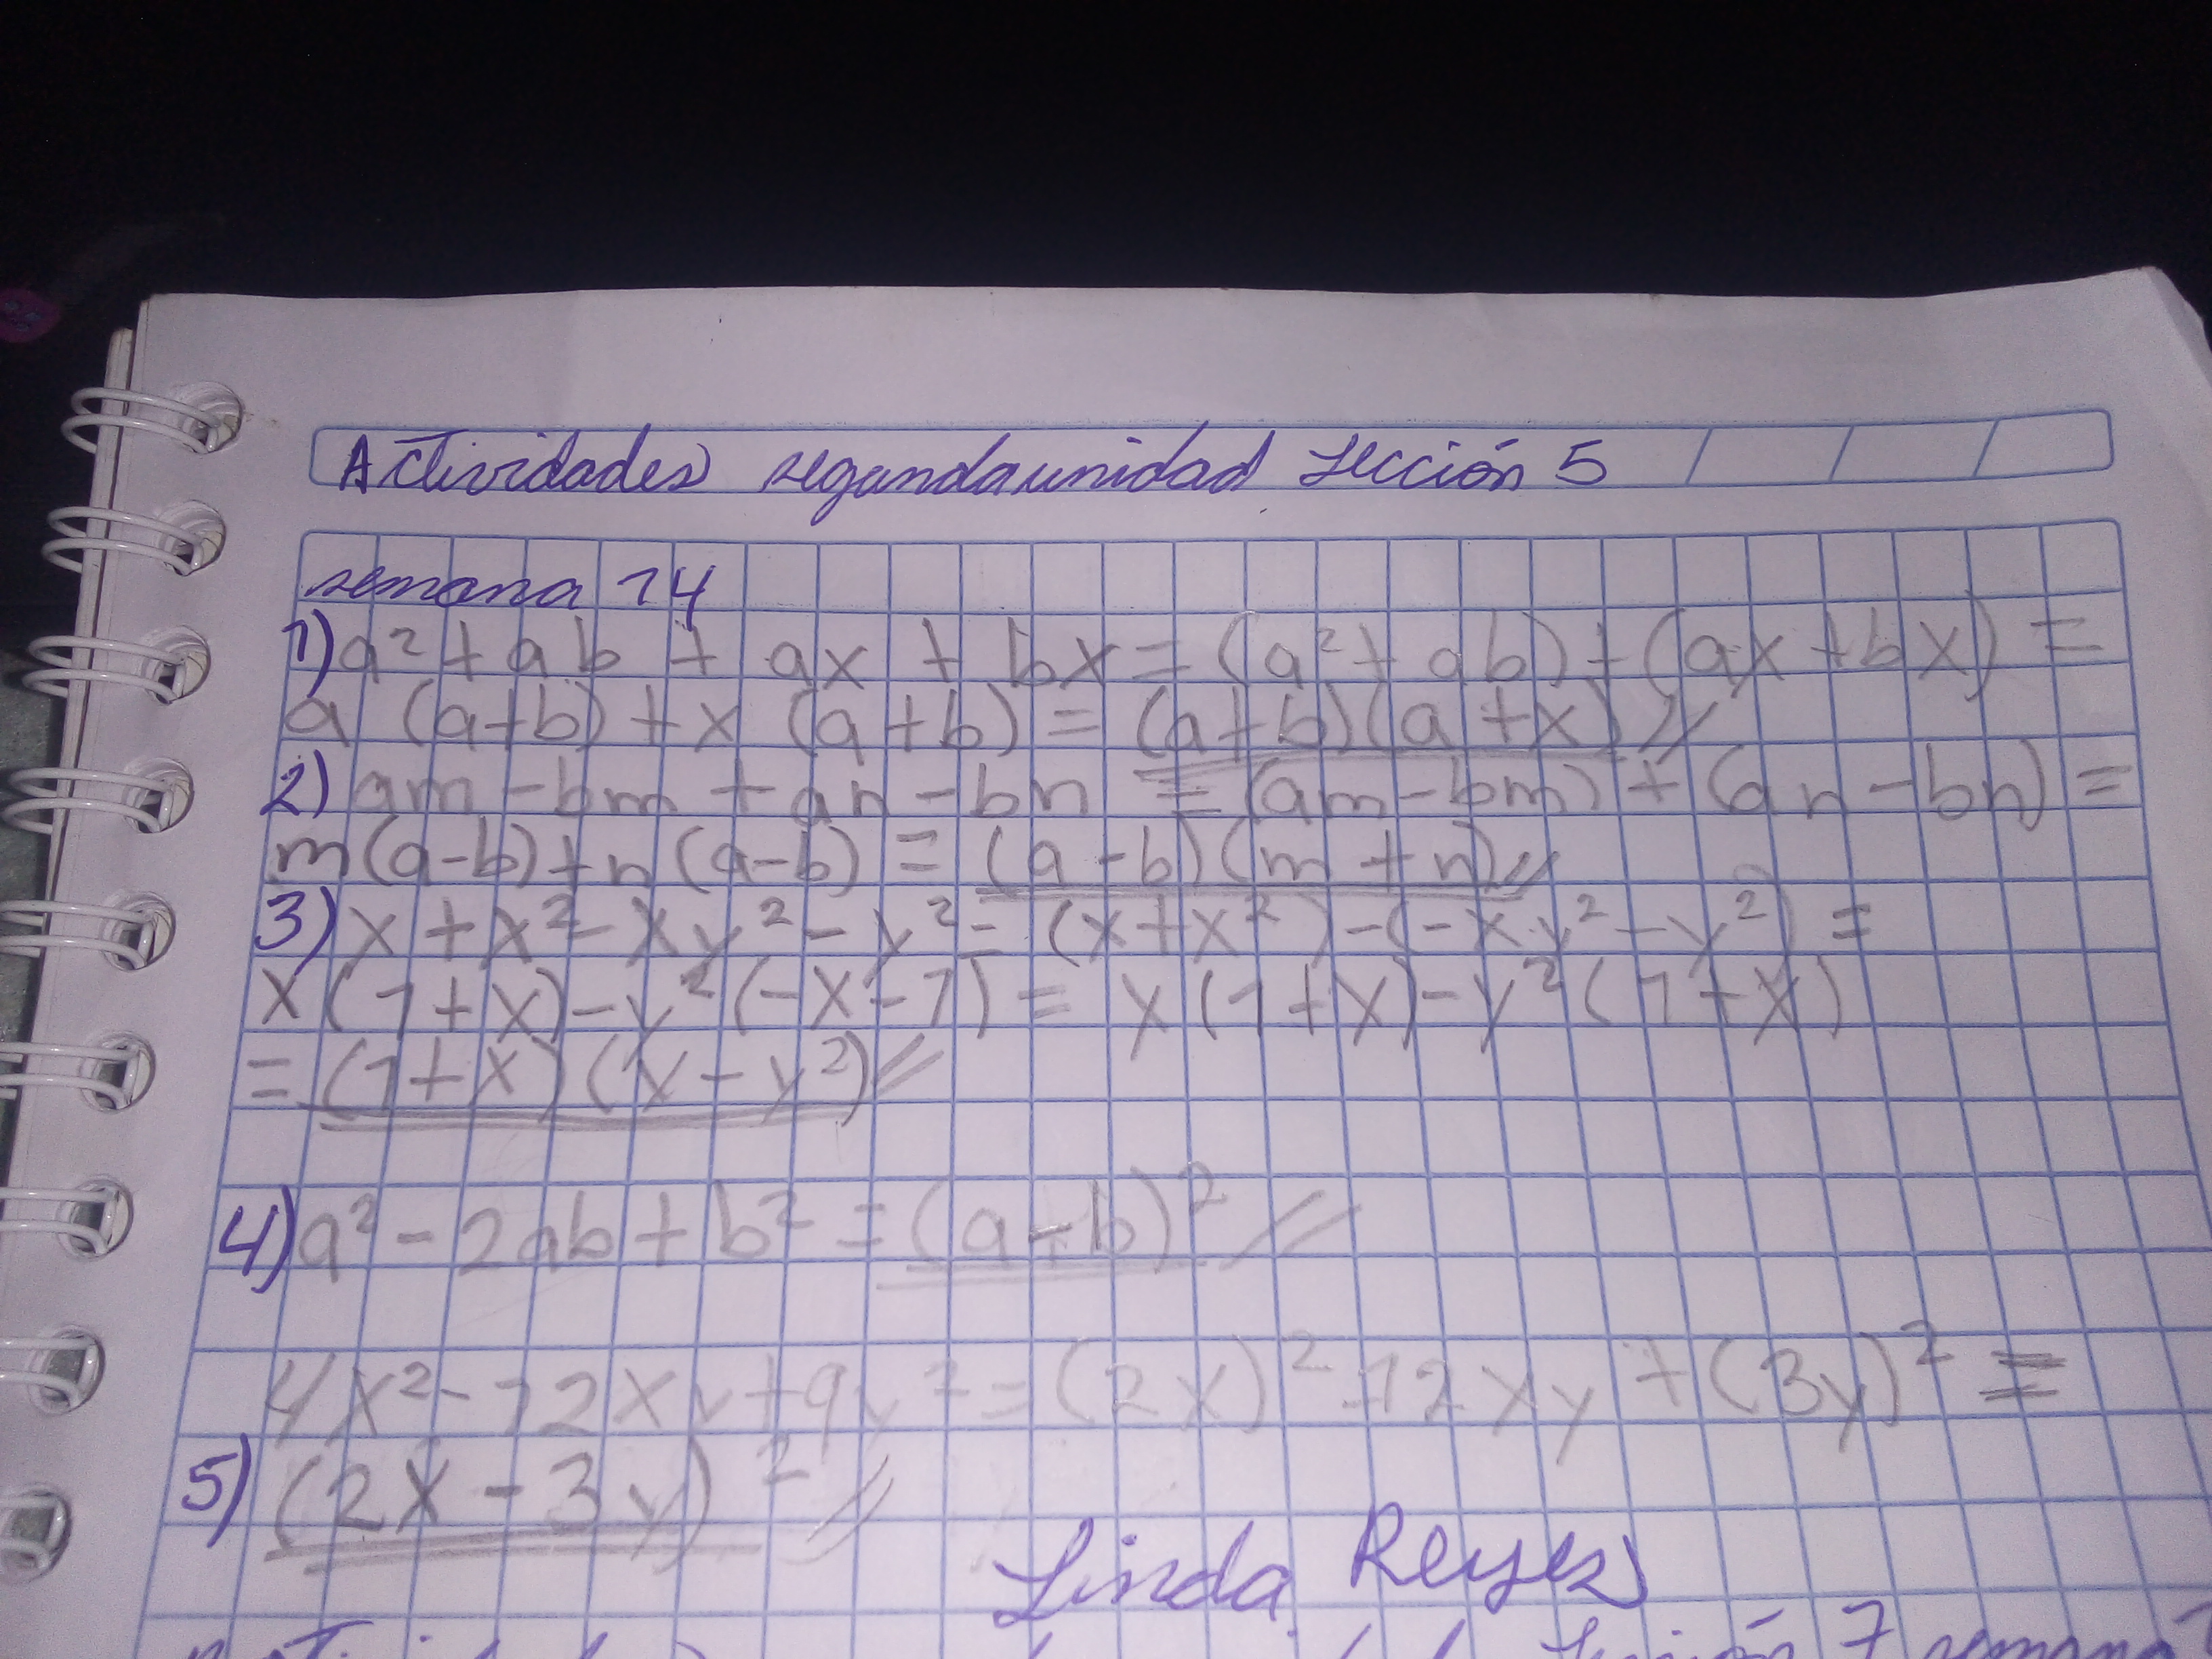 Actividades segunda unidad Lección 5
semana 14
1) a² + ab + ax + bx = (a² + ab) + (ax + bx) =
a (a+b) + x (a+b) = (a+b)(a+x)//
2) am - bm + an - bn = (am - bm) + (an - bn) =
m(a-b)+n(a-b) = (a-b)(m+n)//
3) x + x² - xy² - y² = (x+x²) - (-xy² - y²) =
x(1+x) - y²(-x-1) = x(1+x) - y²(1+x)
= (1+x)(x-y²)//
4) a² - 2ab + b² = (a-b)²//
4x² - 12xy + 9y² = (2x)² - 12xy + (3y)² =
5) (2x - 3y)²//
Linda Reyes
Lección 7 semana